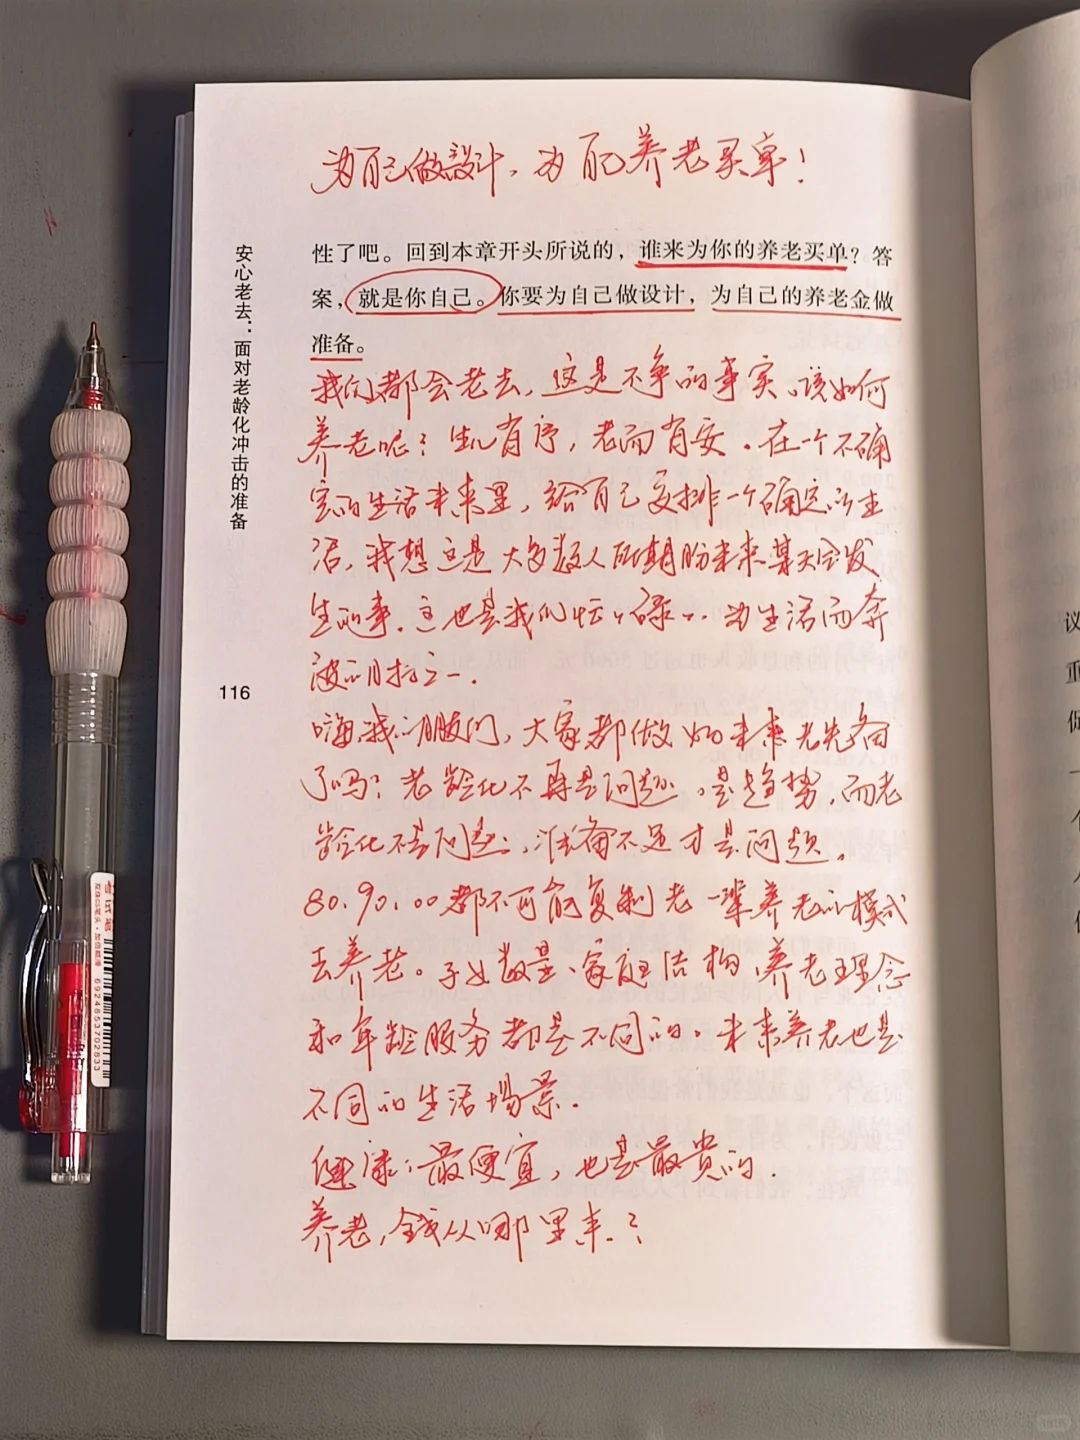 为自己做设计，为自己养老买单！
性了吧。回到本章开头所说的，谁来为你的养老买单？答
案，就是你自己。你要为自己做设计，为自己的养老金做
准备。
我们都会老去，这是不争的事实。该如何
养老呢？生儿有序，老而有安。在一个不确
定的生活未来里，给自己安排一个确定的生
活，我想这是大多数人所期盼未来某天会发
生的事。这也是我们忙忙碌碌，为生活而奔
波的目标之一。
嗨，我的朋友们，大家都做好未来养老准备
了吗？老龄化不再是问题，是趋势，而老
龄化不是问题，准备不足才是问题。
80、90、00都不可能复制老一辈养老的模式
去养老。子女数量、家庭结构、养老理念
和年龄服务都是不同的。未来养老也是
不同的生活场景。
健康：最便宜，也是最贵的。
养老，钱从哪里来？
安心老去：面对老龄化冲击的准备
116
考试笔
6924865370283
议
重
一
个
人